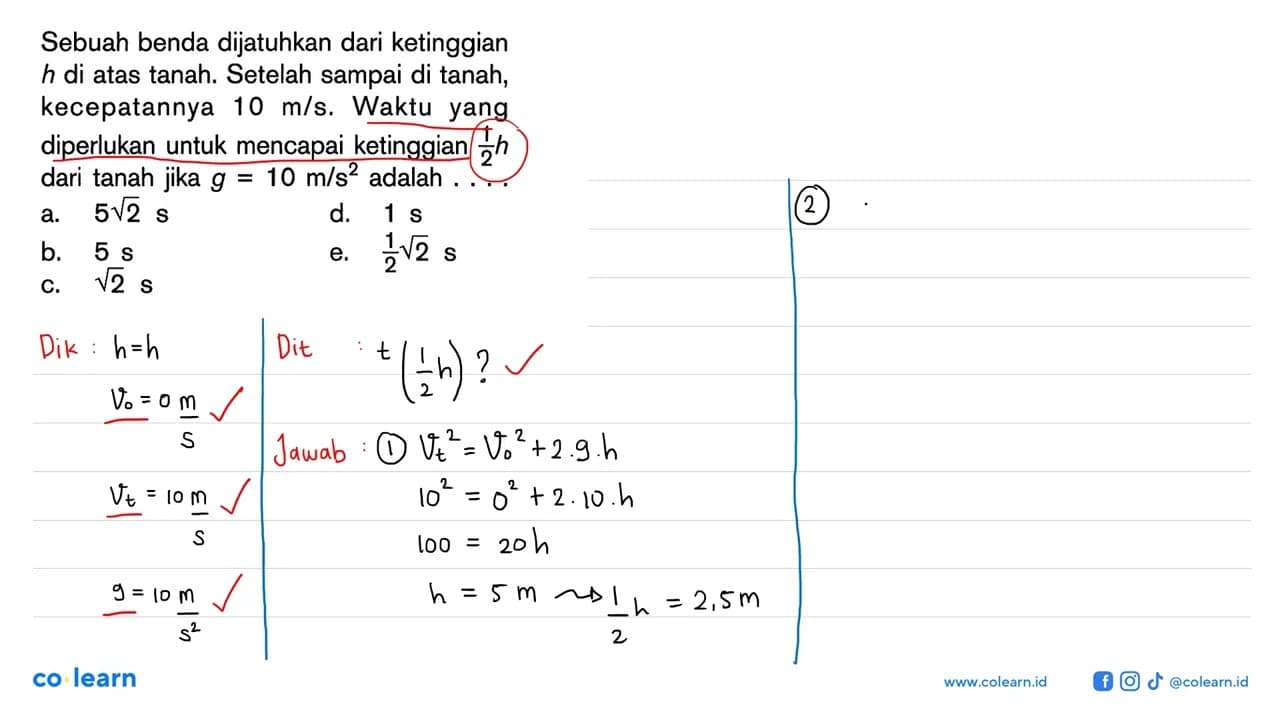 Sebuah benda dijatuhkan dari ketinggian
h di atas tanah. Setelah sampai di tanah,
kecepatannya 10 m/s. Waktu yang
diperlukan untuk mencapai ketinggian 1/2 h
dari tanah jika g = 10 m/s² adalah . . . .
a. 5√2 s d. 1 s
b. 5 s e. 1/2 √2 s
c. √2 s
Dik : h = h
V₀ = 0 m/s
Vₜ = 10 m/s
g = 10 m/s²
Dit : t (1/2 h) ?
Jawab : ① Vₜ² = V₀² + 2 . g . h
10² = 0² + 2 . 10 . h
100 = 20h
h = 5 m ⇝ 1/2 h = 2,5 m
②
co learn
www.colearn.id @colearn.id